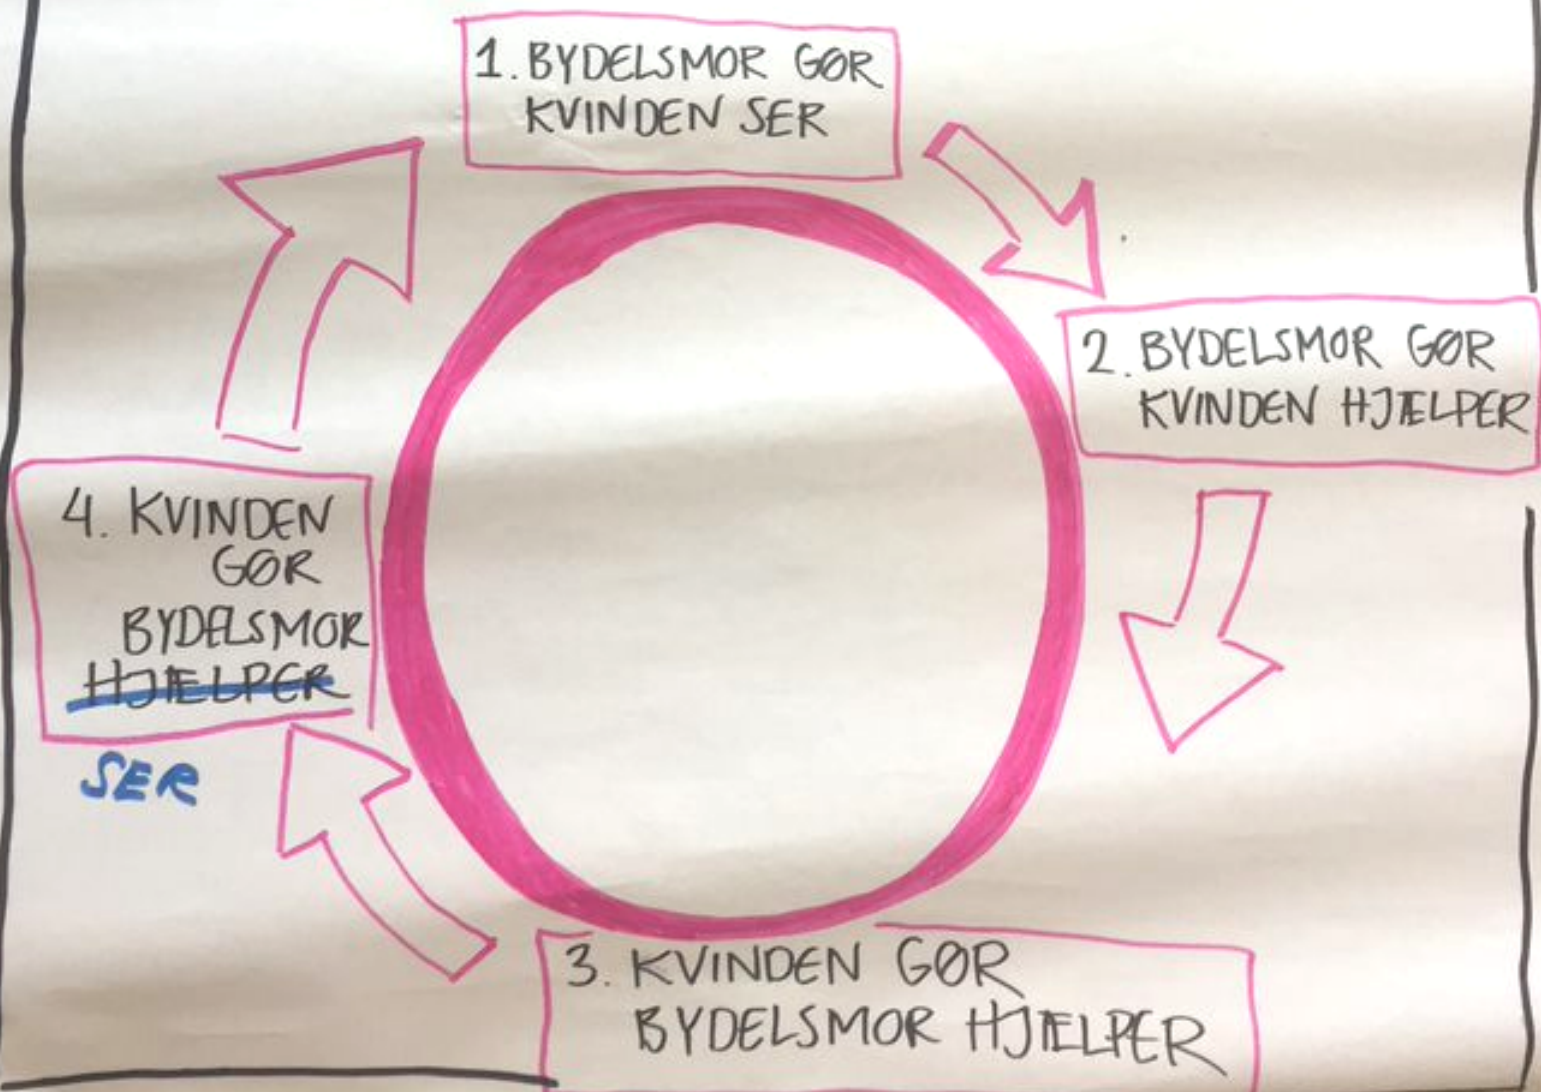 1. BYDELSMOR GØR
KVINDEN SER
2. BYDELSMOR GØR
KVINDEN HJÆLPER
3. KVINDEN GØR
BYDELSMOR HJÆLPER
4. KVINDEN
GØR
BYDELSMOR
HJÆLPER
SER